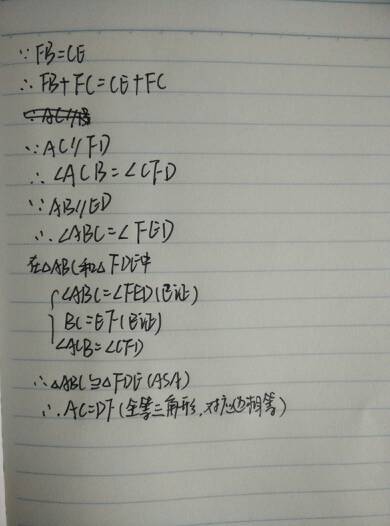 ∵FB=CE
∴FB+FC=CE+FC
∵AC//FD
∴∠ACB=∠CFD
∵AB//ED
∴∠ABC=∠FED
在△ABC和△FDE中
∠ABC=∠FED(已证)
BC=EF(已证)
∠ACB=∠CFD
∴△ABC≌△FDE(ASA)
∴AC=DF(全等三角形,对应边相等)